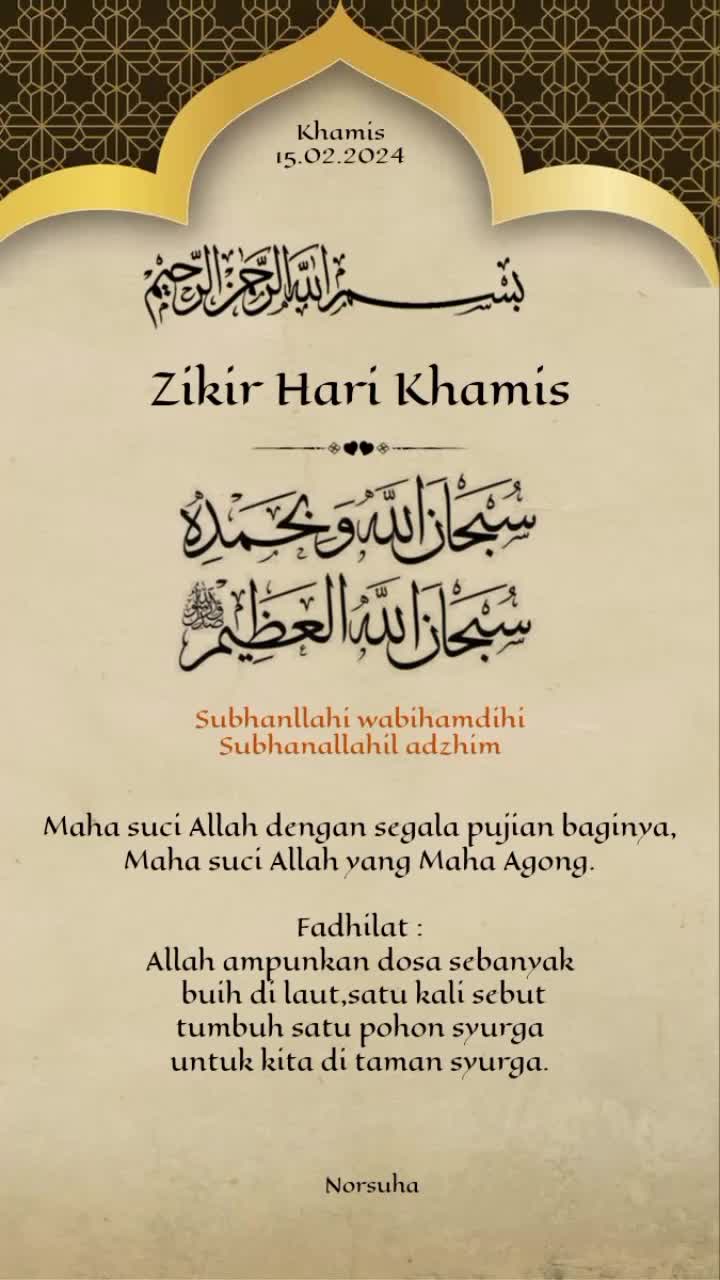 Khamis
15.02.2024
بسم الله الرحمن الرحيم
Zikir Hari Khamis
سُبْحَانَ اللهِ وَبِحَمْدِهِ
سُبْحَانَ اللهِ الْعَظِيمِ ﷺ
Subhanllahi wabihamdihi
Subhanallahil adzhim
Maha suci Allah dengan segala pujian baginya,
Maha suci Allah yang Maha Agong.
Fadhilat :
Allah ampunkan dosa sebanyak
buih di laut,satu kali sebut
tumbuh satu pohon syurga
untuk kita di taman syurga.
Norsuha